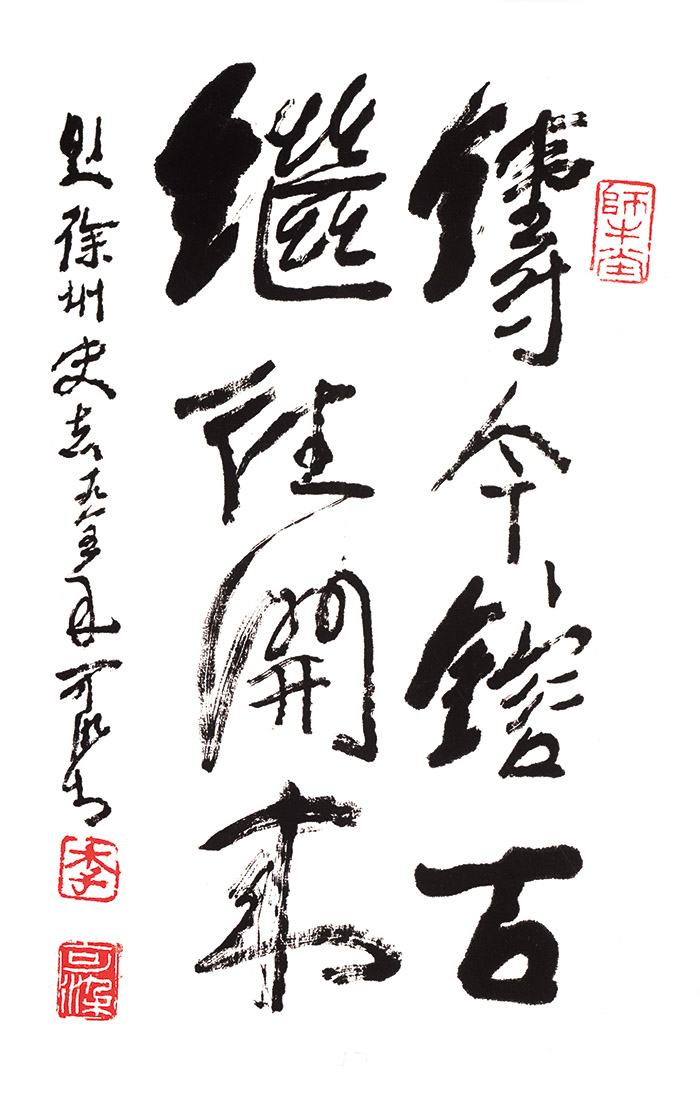 師牛堂
鑄今鎔古
繼往開來
題徐州史志 年可染書
李
可染